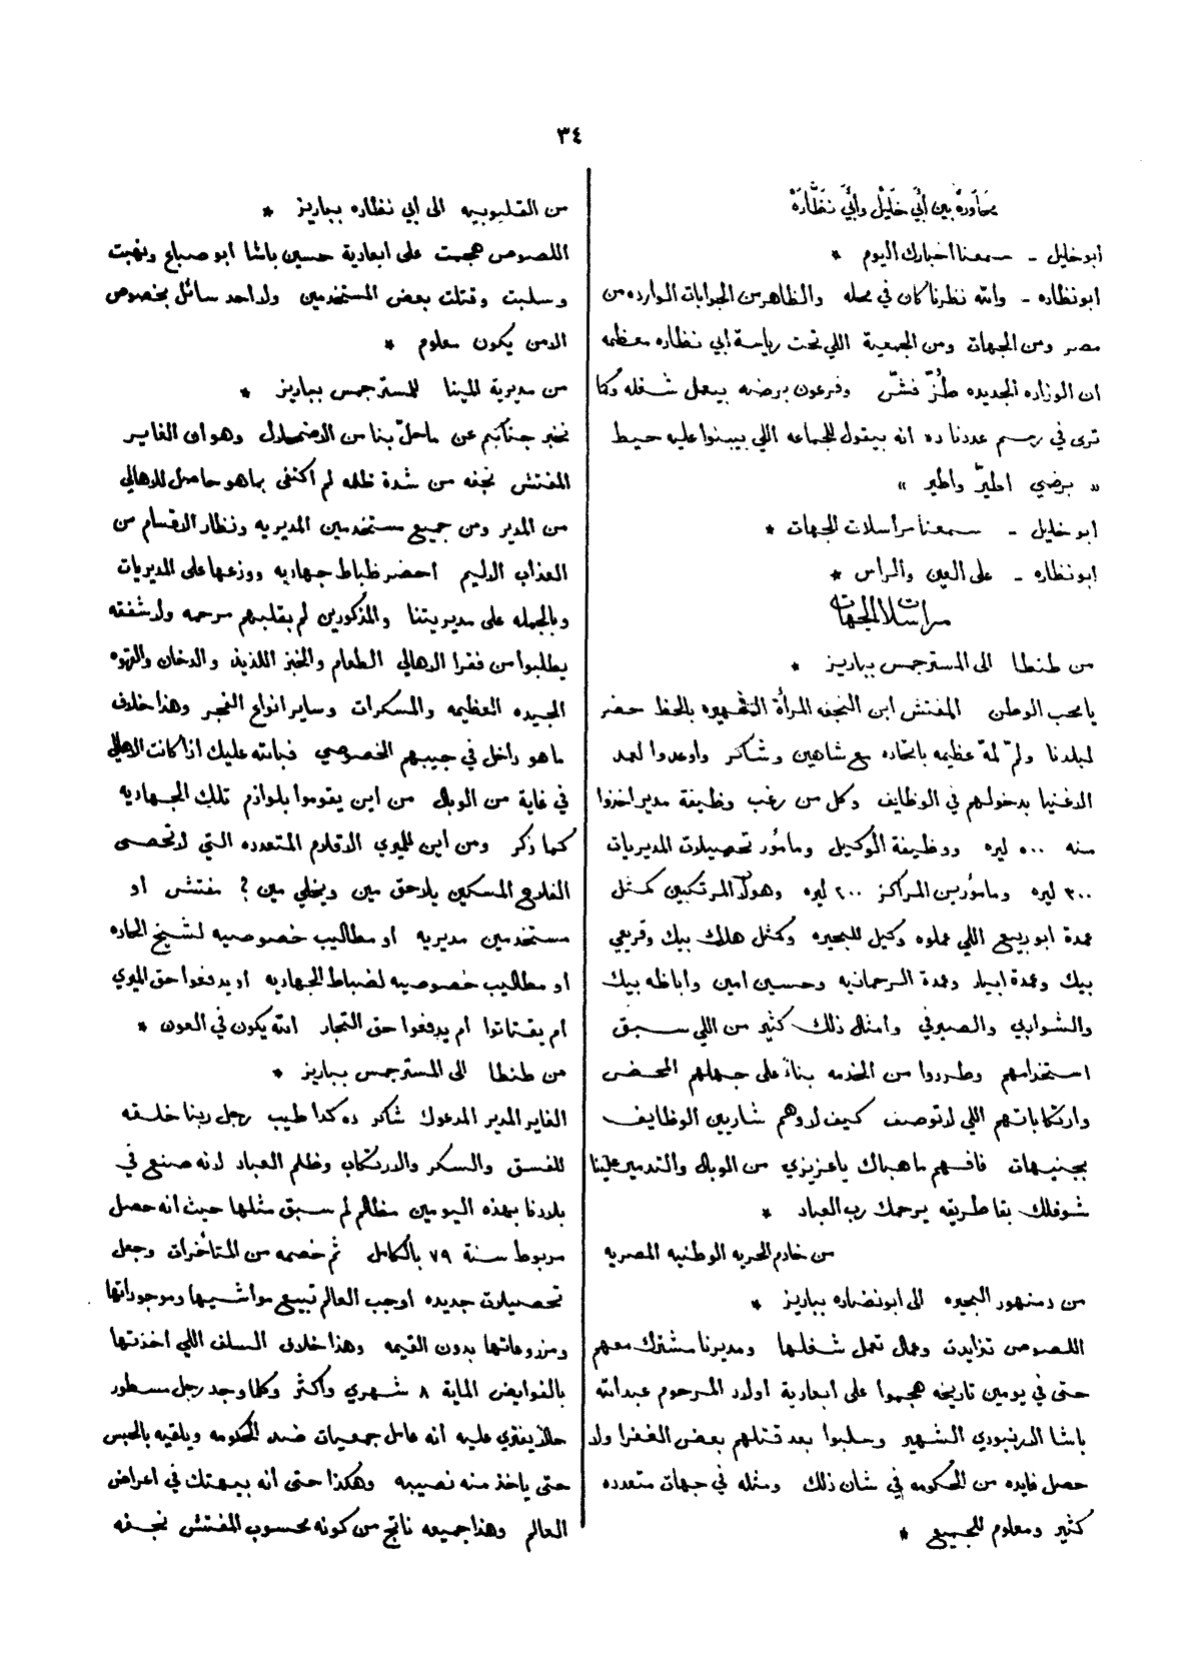 ٣٤
محاورة بين أبي خليل وأبي نظّارة
أبو خليل ـ سمعنا أخبارك اليوم *
ابو نظاره ـ والله نظرنا كان في محله والظاهر من الجوابات الوارده من
مصر ومن الجهات ومن الجمعية اللي تحت رياسة أبي نظاره معظمه
ان الوزاره الجديده طُزّ فشّ وفرعون برضه بيعمل شغله وكما
ترى في رسم عددنا ده انه بيقول للجماعه اللي بيبنوا عليه حيط
« برضي اطيرّ واطير »
ابو خليل ـ سمعنا مراسلات الجهات *
ابو نظاره ـ على العين والراس *
مراسلات الجهات
من طنطا الى المسترجمس بباريز *
يا محب الوطن المفتش ابن النجفه المرأة الشهيره بالحظ حضر
لبلدنا ولمّ لمة عظيمه باتحاده مع شاهين وشاكر واوعدوا لعمد
الاغنيا بدخولهم في الوظايف وكل من رغب وظيفة مدير اخذوا
منه ٥٠٠ ليره ووظيفة الوكيل ومأمور تحصيلات المديريات
٣٠٠ ليره ومامورين المراكز ٢٠٠ ليره وهولا المرتكبين كمثل
عمدة ابو ربيع اللي عملوه وكيل للبحيره وكمثل هلال بيك وقريعي
بيك وعمدة ابيار وعمدة الرحمانيه وحسين امين واباظه بيك
والشواربي والصيرفي وامثال ذلك كثير من اللي سبق
استخدامهم وطردوا من الخدمه بناءً على جهلهم المحض
وارتكاباتهم اللي لا توصف كيف لا وهم شاريين الوظايف
بجنيهات فافهم ما هباك يا عزيزي من الوبال والتدمير علينا
شوفلك بقا طريقه يرحمك رب العباد *
من خادم الحريه الوطنيه المصريه
من دمنهور البحيره الى ابو نضاره بباريز *
اللصوص تزايدت وعمال تعمل شغلها ومديرنا مشترك معهم
حتى في يومين تاريخه هجموا على أبعادية اولاد المرحوم عبد الله
باشا الارنبودي الشهير وحلبوا بعد قتلهم بعض الغفرا ولا
حصل فايده من الحكومه في شان ذلك ومثله في جهات متعدده
كثير ومعلوم للجميع *
من القليوبيه الى ابي نظاره بباريز *
اللصوص هجمت على ابعادية حسين باشا ابو صباع ونهبت
وسلبت وقتلت بعض المستخدمين ولا احد سائل بخصوص
الامن يكون معلوم *
من مديرية المنيا للمسترجمس بباريز *
نخبر جنابكم عن ما حلّ بنا من الاضمحلال وهو ان الغاير
المفتش نجفه من شدة ظلمه لم اكتفى بما هو حاصل للاهالي
من المدير ومن جميع مستخدمين المديريه ونظار الاقسام من
العذاب الاليم احضر ظباط جهاديه ووزعها على المديريات
وبالجمله على مديريتنا والمذكورين لم بقلبهم مرحمه ولا شفقه
يطلبوا من فقرا الاهالي الطعام والخبز اللذيذ والدخان والقهوه
الجيده العظيمه والمسكرات وساير انواع الفجر وهذا خلاف
ما هو داخل في جيبهم الخصوصي فبالله عليك اذا كانت الاهالي
في غاية من الوبال من اين يقوموا بلوازم تلك الجهاديه
كما ذكر ومن أين للميري الاقلام المتعدده التي لا تحصى
الفلاح المسكين يلاحق مين ويخلي مين ؟ مفتش او
مستخدمين مديريه او مطاليب خصوصيه لشيخ الحاره
او مطاليب خصوصيه لضباط الجهاديه او يدفعوا حق الميري
ام يقتاتوا ام يدفعوا حق التجار الله يكون في العون *
من طنطا الى المسترجمس بباريز *
الغاير المدير المدعوك شاكر ده كدا طيب رجل ربنا خلقه
للفسق والسكر والارتكاب وظلم العباد لانه صنع في
بلادنا بهذه اليومين مظالم لم سبق مثلها حيث انه حصل
مربوط سنة ٧٩ بالكامل ثم خصمه من المتأخرات وجعل
تحصيلات جديده اوجب العالم تبيع مواشيها وموجوداتها
ومزروعاتها بدون القيمه وهذا خلاف السلف اللي اخذتها
بالفوايض الماية ٨ شهري واكثر وكلما وجد رجل مسطور
حالا يفتري عليه انه عامل جمعيات ضد الحكومه ويلقيه بالحبس
حتى ياخذ منه نصيبه وهكذا حتى أنه بيهتك في أعراض
العالم وهذا جميعه ناتج من كونه محسوب المفتش نجفه